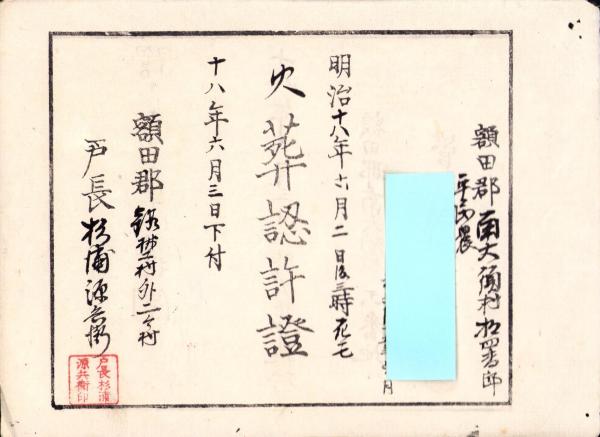 額田郡南大須村拾四番邸
平民農
明治十八年六月二日後三時死亡
火葬認許證
十八年六月三日下付
額田郡
村外二ヶ村
戸長杉浦源兵衛
戸長杉浦
源兵衛印